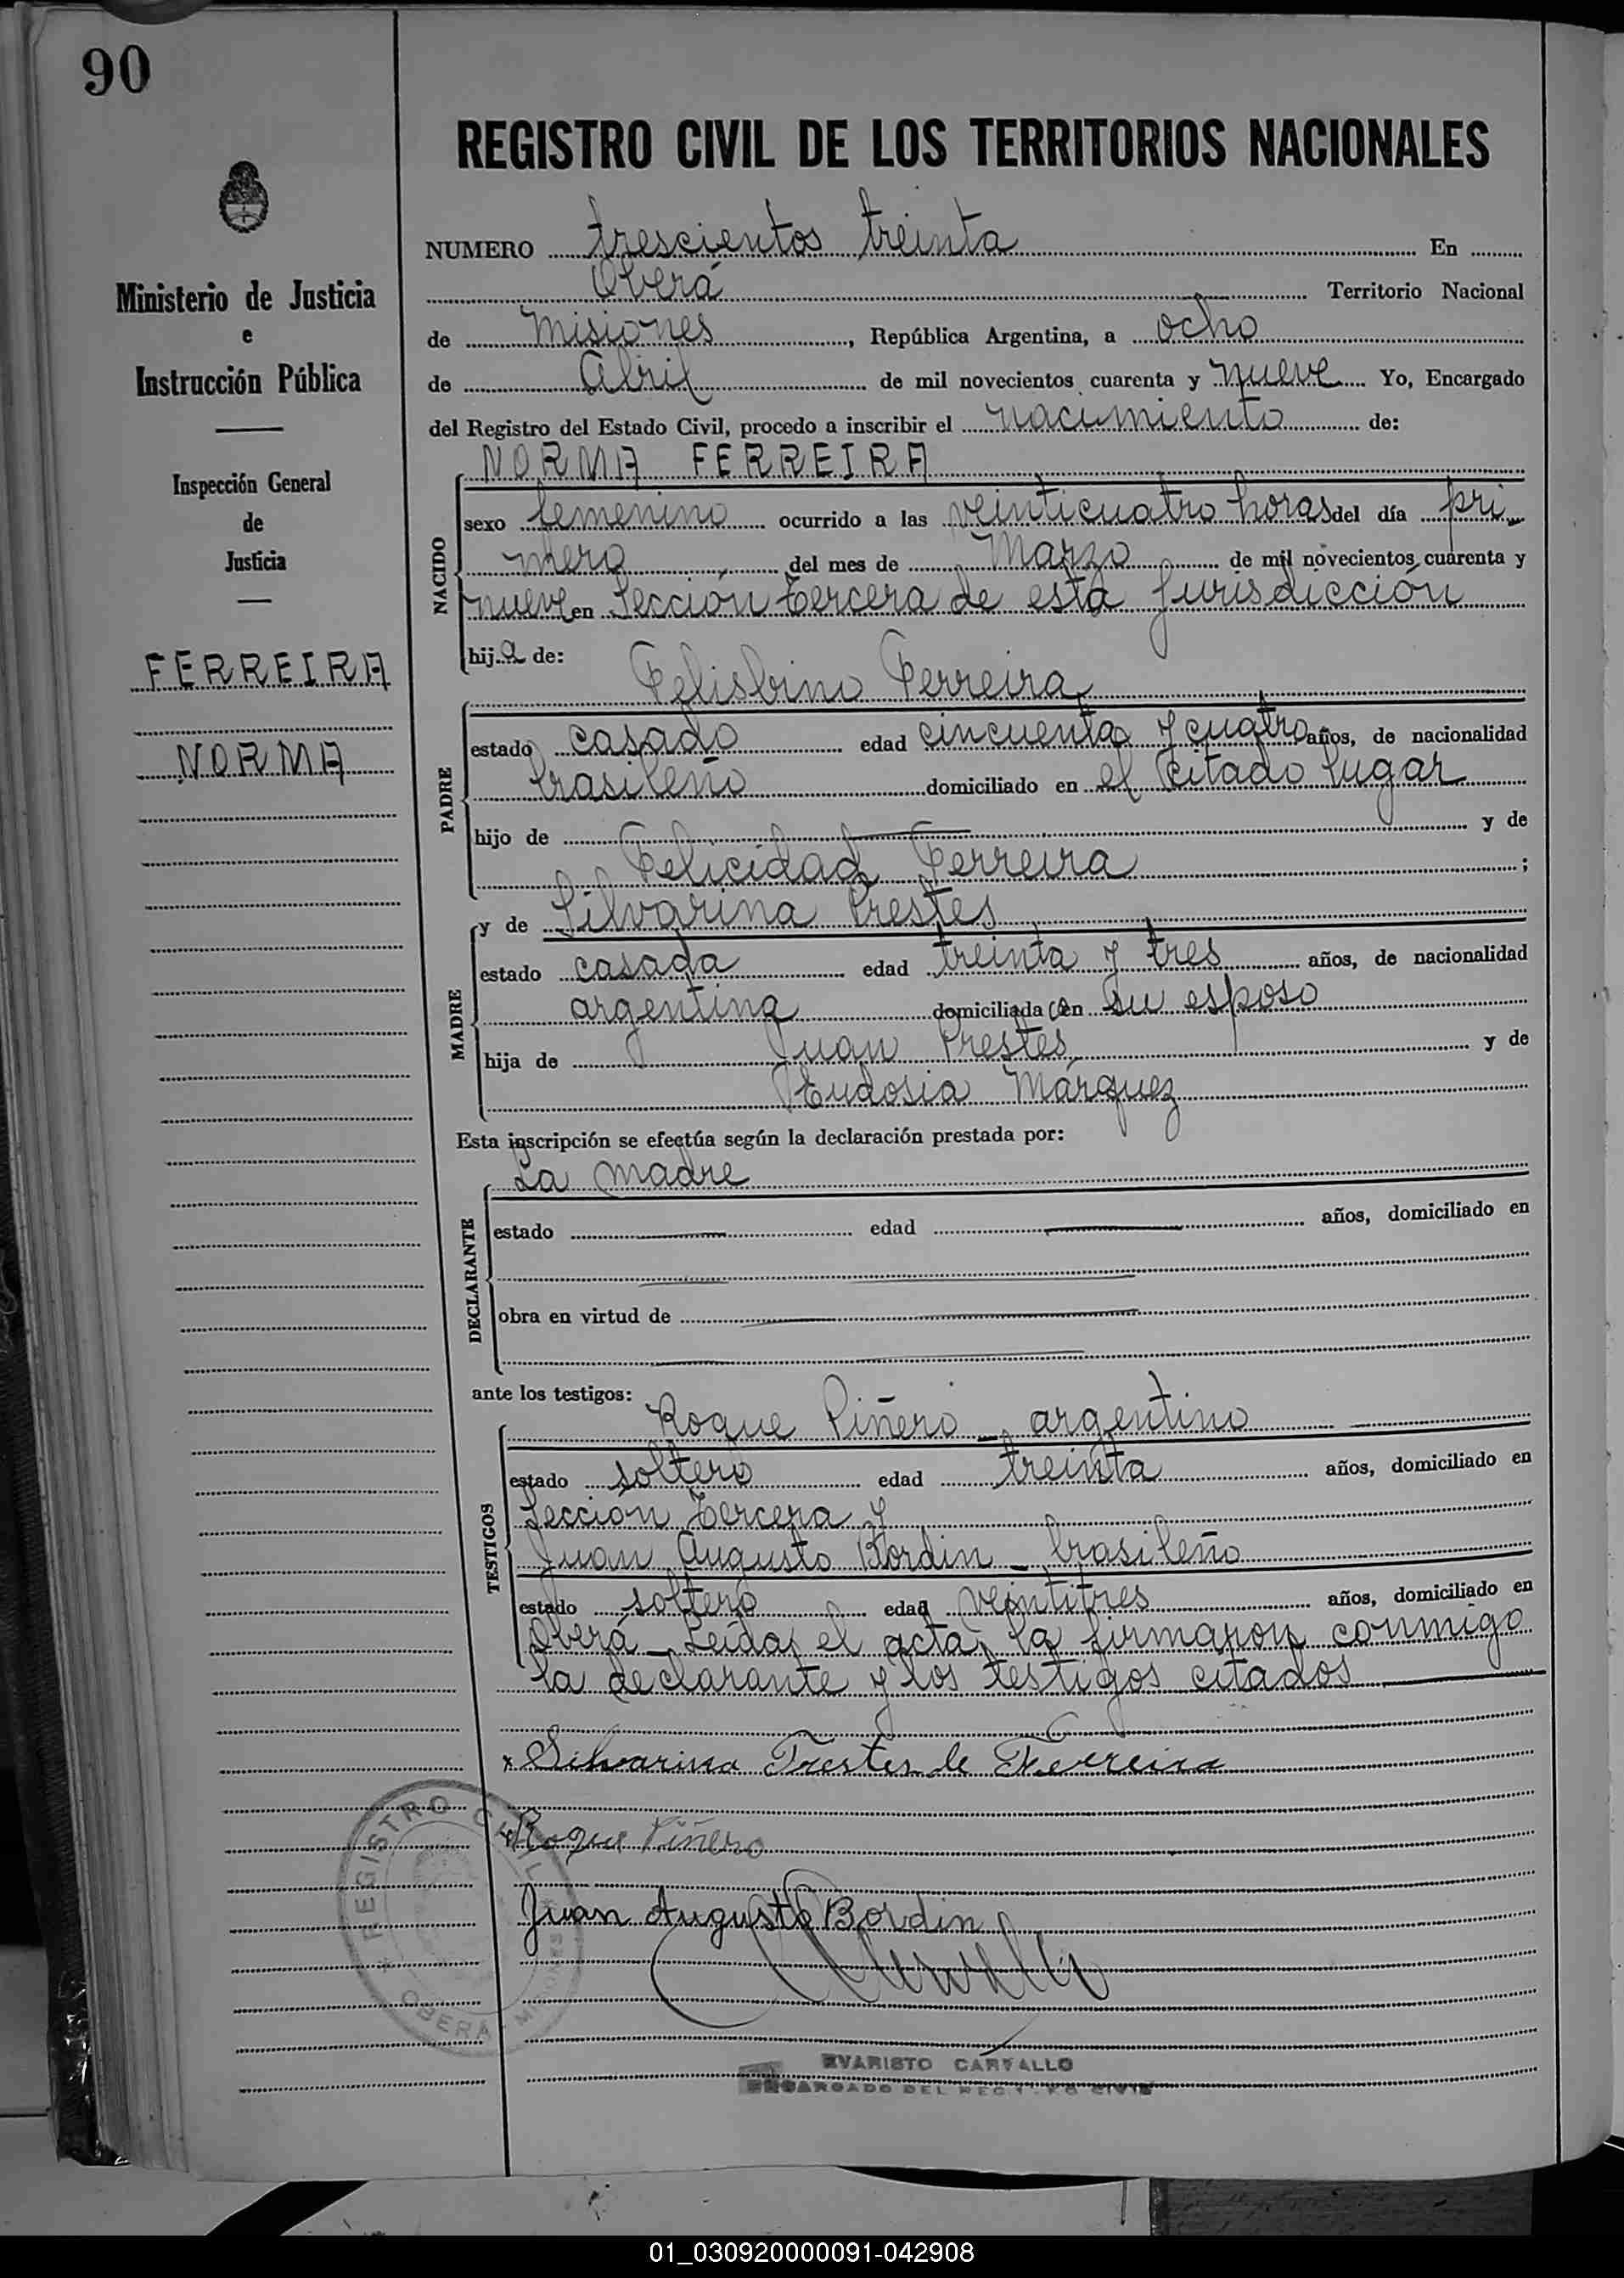 90
REGISTRO CIVIL DE LOS TERRITORIOS NACIONALES
Ministerio de Justicia
e
Instrucción Pública
Inspección General
de
Justicia
FERREIRA
NORMA
NUMERO trescientos treinta En
Oberá Territorio Nacional
de Misiones, República Argentina, a ocho
de Abril de mil novecientos cuarenta y nueve Yo, Encargado
del Registro del Estado Civil, procedo a inscribir el nacimiento de:
NACIDO
NORMA FERREIRA
sexo femenino ocurrido a las veinticuatro horas del día pri
mero del mes de Marzo de mil novecientos cuarenta y
nueve en Sección Tercera de esta jurisdicción
hija de:
PADRE
Felisbino Ferreira
estado casado edad cincuenta y cuatro años, de nacionalidad
brasileño domiciliado en el citado lugar
hijo de y de
Felicidad Ferreira ;
MADRE
y de Silvarina Prestes
estado casada edad treinta y tres años, de nacionalidad
argentina domiciliada con su esposo
hija de Juan Prestes y de
Eudosia Márquez
Esta inscripción se efectúa según la declaración prestada por:
DECLARANTE
La madre
estado edad años, domiciliado en
obra en virtud de
ante los testigos:
TESTIGOS
Roque Piñero - argentino
estado soltero edad treinta años, domiciliado en
Sección Tercera y
Juan Augusto Bordin - brasileño
estado soltero edad veintitres años, domiciliado en
Oberá - Leída el acta, la firmaron conmigo
la declarante y los testigos citados
x Silvarina Prestes de Ferreira
x Roque Piñero
Juan Augusto Bordin
REGISTRO CIVIL
OBERÁ - MISIONES
EVARISTO CARVALLO
ENCARGADO DEL REGISTRO CIVIL
01_030920000091-042908